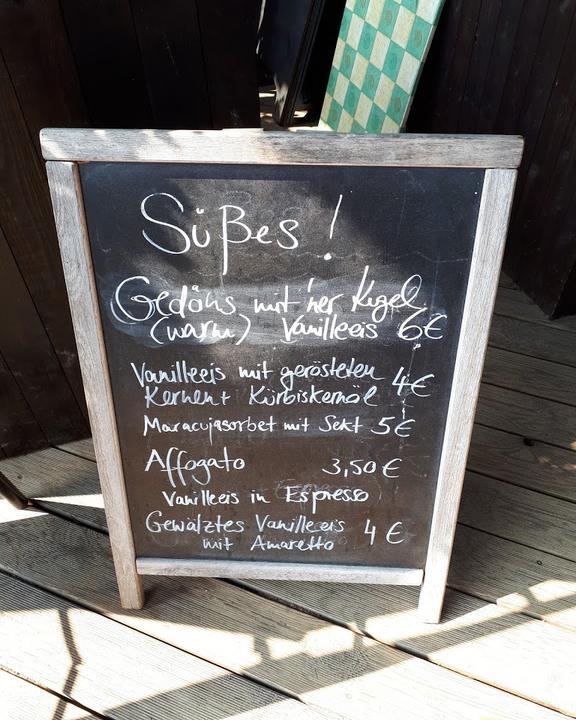 Süßes !
Gedöns mit 'ner Kugel
(warm) Vanilleeis 6€
Vanilleeis mit gerösteten
Kernen + Kürbiskernöl 4€
Maracujasorbet mit Sekt 5€
Affogato 3,50€
Vanilleeis in Espresso
Gewälztes Vanilleeis
mit Amaretto 4€